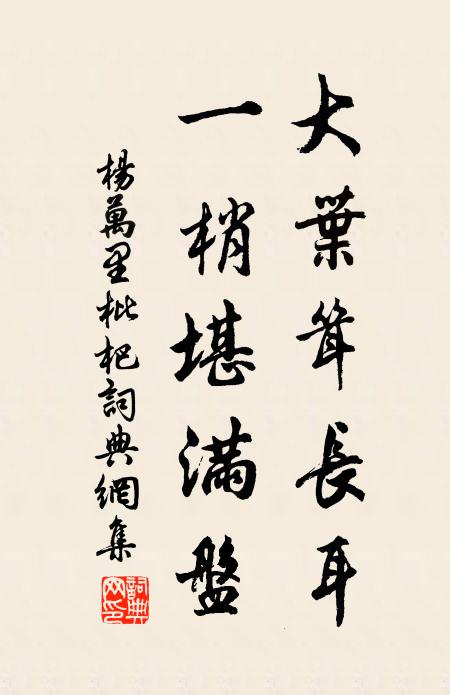 大葉耸長耳
一梢堪滿盤
楊萬里枇杷詞典網集
詞典網印